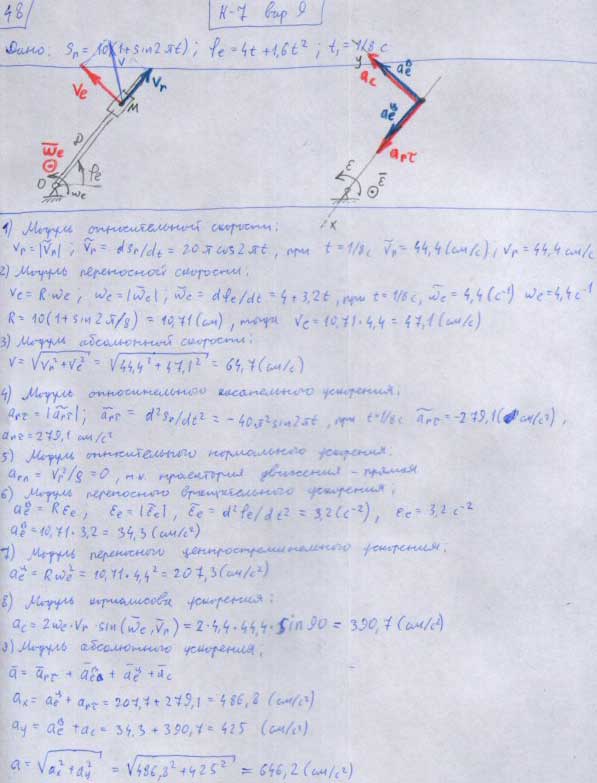 48
К-7 вар 9
Дано: Sr = 10(1+sin2πt); φe = 4t + 1,6t²; t1 = 1/8 с
V
Ve
Vr
M
D
ω̄e
φe
O
ωe
y
ac
aeᴮ
aeц
arτ
ε
ε̄
x
1) Модуль относительной скорости:
Vr = |Ṽr|; Ṽr = dSr/dt = 20π cos2πt, при t = 1/8 с Ṽr = 44,4 (см/с), Vr = 44,4 см/с
2) Модуль переносной скорости:
Ve = Rωe; ωe = |ω̃e|; ω̃e = dφe/dt = 4 + 3,2t, при t = 1/8 с, ω̃e = 4,4 (с⁻¹) ωe = 4,4 с⁻¹
R = 10(1+sin2π/8) = 10,71 (см), тогда Ve = 10,71·4,4 = 47,1 (см/с)
3) Модуль абсолютной скорости:
V = √(Vr² + Ve²) = √(44,4² + 47,1²) = 64,7 (см/с)
4) Модуль относительного касательного ускорения:
arτ = |ãrτ|; ãrτ = d²Sr/dt² = -40π² sin2πt, при t = 1/8 с ãrτ = -279,1 (см/с²),
arτ = 279,1 см/с²
5) Модуль относительного нормального ускорения.
arn = Vr²/ρ = 0, т.к. траектория движения - прямая
6) Модуль переносного вращательного ускорения:
aeᴮ = Rεe; εe = |ε̃e|, ε̃e = d²φe/dt² = 3,2 (с⁻²), εe = 3,2 с⁻²
aeᴮ = 10,71·3,2 = 34,3 (см/с²)
7) Модуль переносного центростремительного ускорения:
aeц = Rωe² = 10,71·4,4² = 207,3 (см/с²)
8) Модуль кориолисова ускорения:
ac = 2ωe·Vr·sin(ω̄e, V̄r) = 2·4,4·44,4·sin90 = 390,7 (см/с²)
9) Модуль абсолютного ускорения:
ā = ārτ + āeᴮ + āeц + āc
ax = aeц + arτ = 207,7 + 279,1 = 486,8 (см/с²)
ay = aeᴮ + ac = 34,3 + 390,7 = 425 (см/с²)
a = √(ax² + ay²) = √(486,8² + 425²) = 646,2 (см/с²)